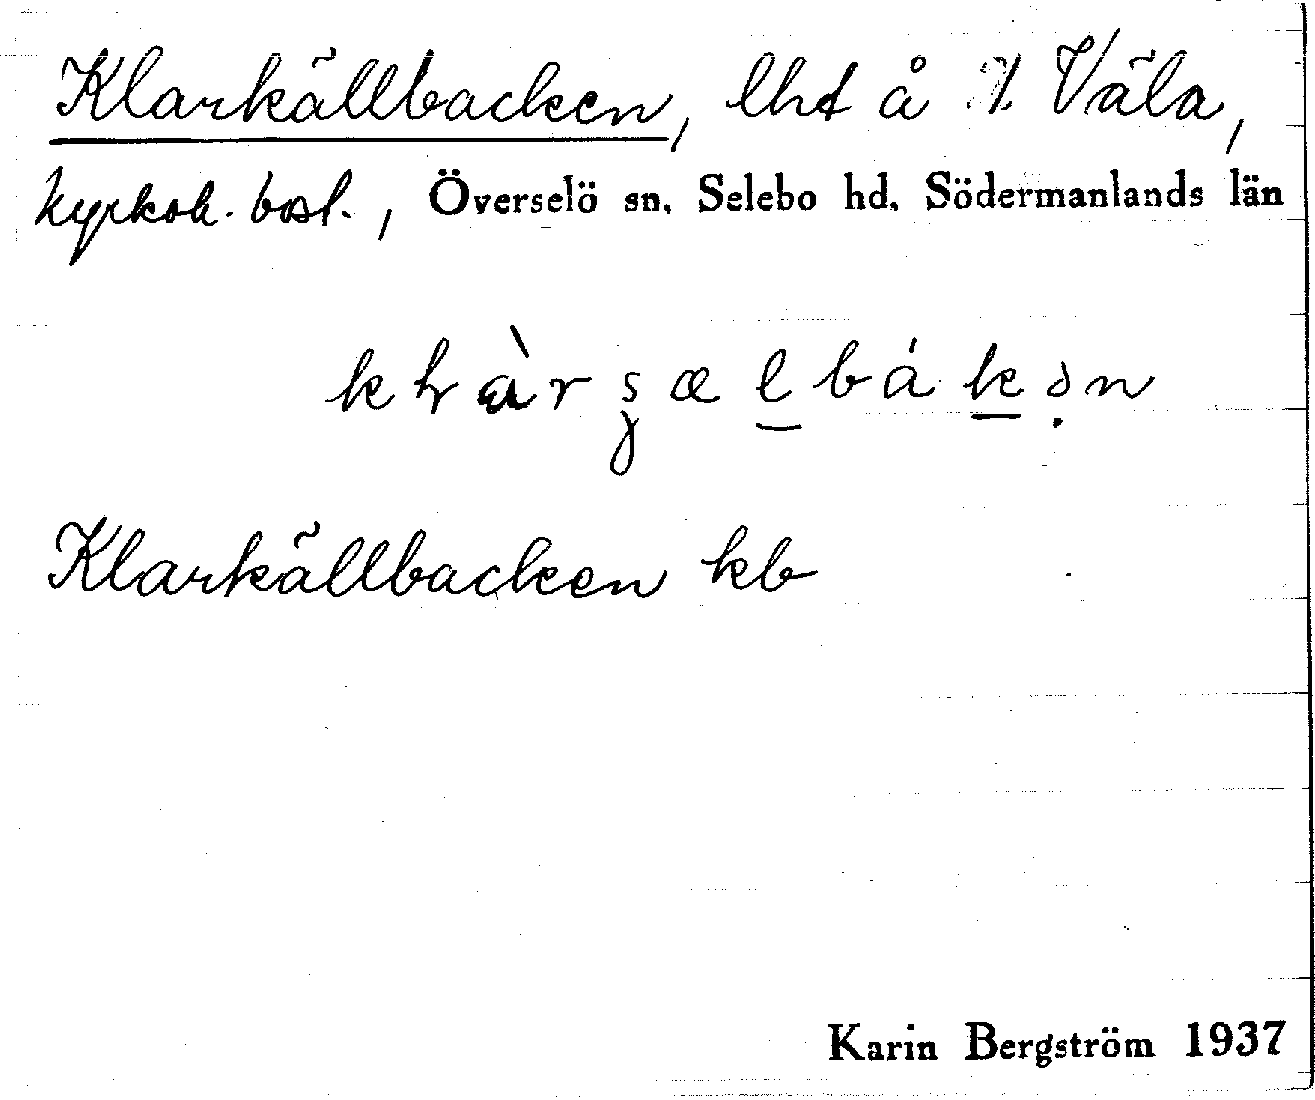 Klarkällbacken, lht å 1/1 Väla,
kyrkoh. bost., Överselö sn. Selebo hd. Södermanlands län
Klarkällbacken kb
Karin Bergström 1937